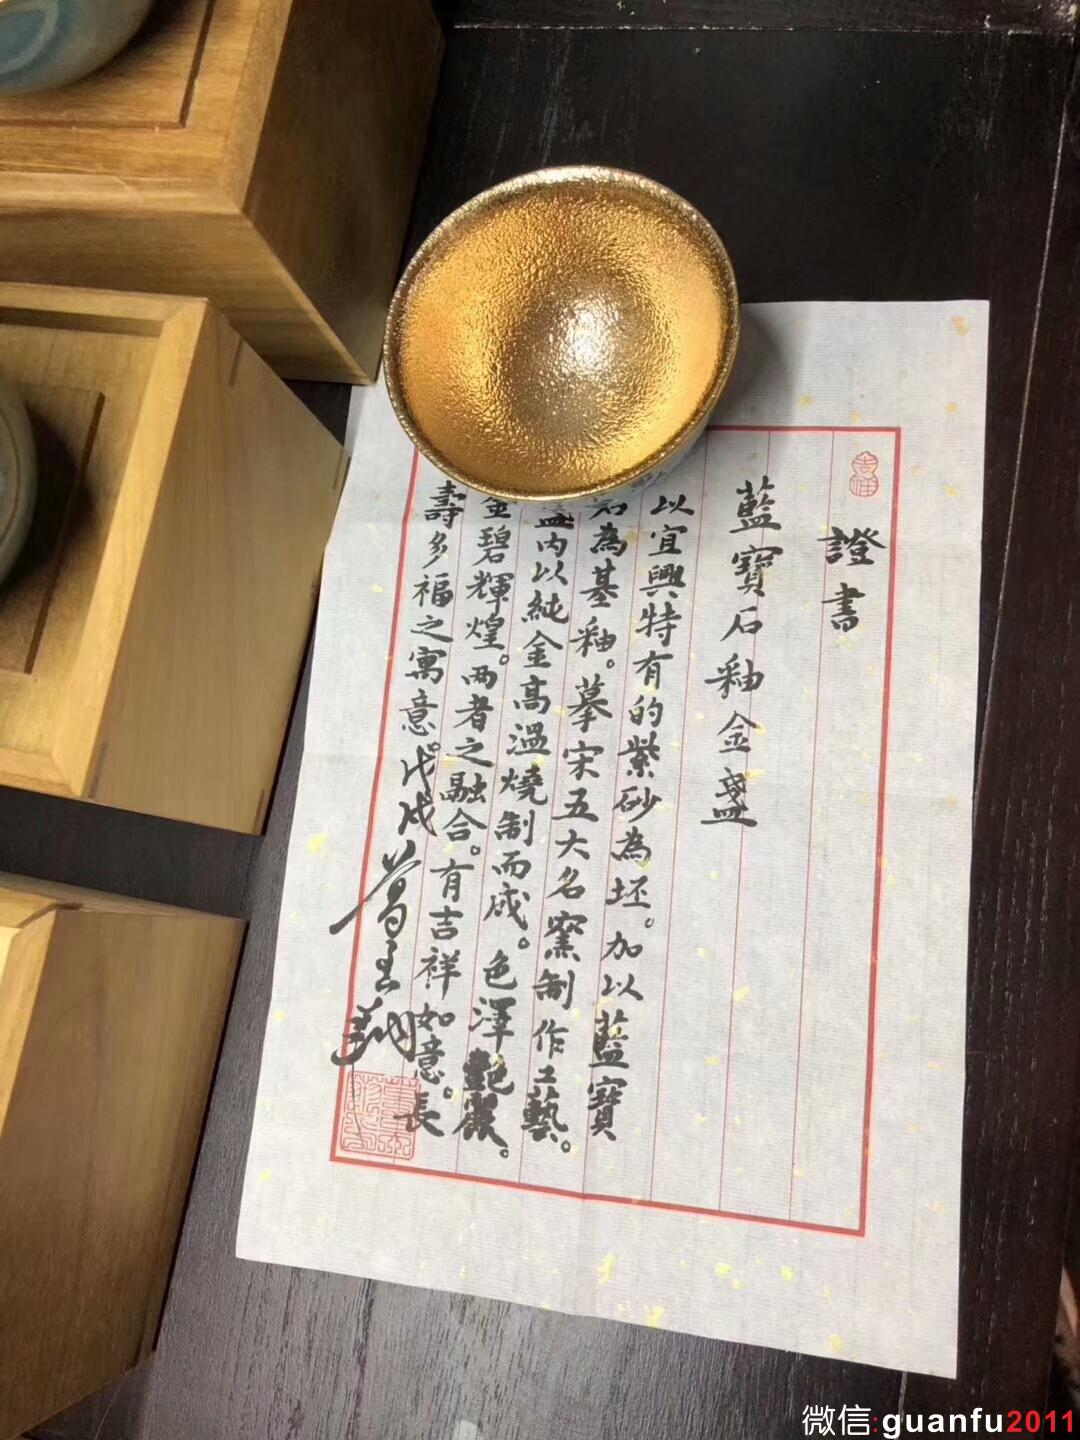 吉祥
證書
藍寶石釉金盞
以宜興特有的紫砂為坯。加以藍寶
石為基釉。摹宋五大名窯制作工藝。
盞内以純金高温燒制而成。色澤艷麗。
金碧輝煌。两者之融合。有吉祥如意。長
壽多福之寓意。戊戌
微信:guanfu2011